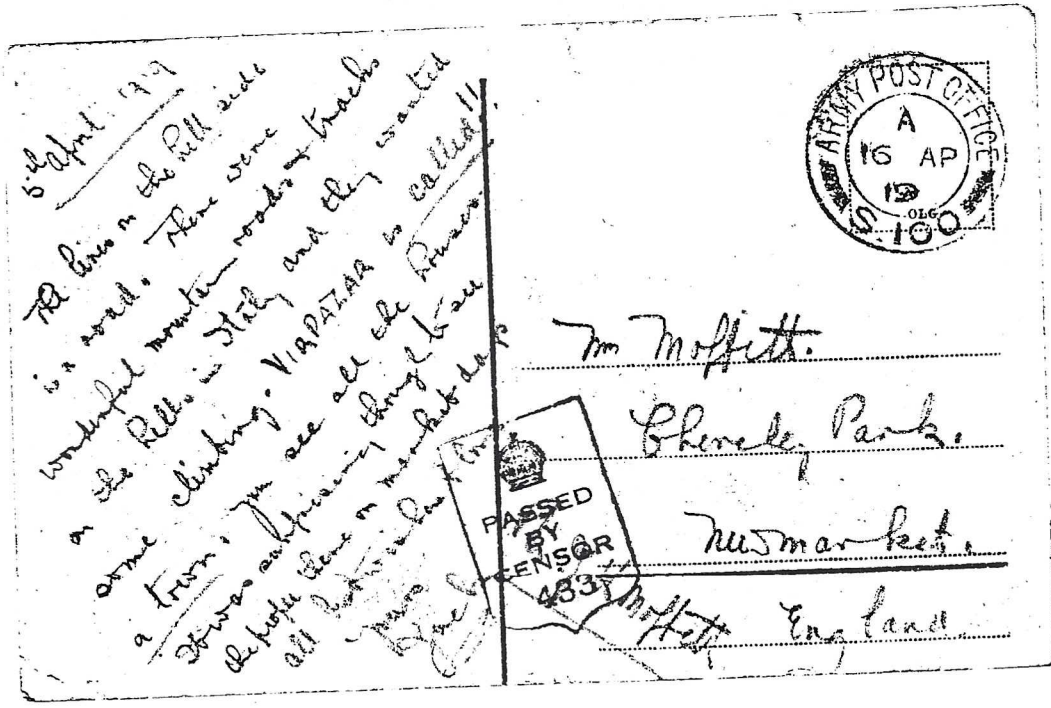 5th April 1919
The lines on the hill side
is a road. There were
wonderful mountain roads & tracks
on the hills in Italy and they wanted
some climbing. VIRPAZAR is called
a town, you see all the houses.
It was surprising though to see
the people there on market days
all
yours
Jack
Moffett
ARMY POST OFFICE
A
16 AP
19
OLG
S.100
Mrs Moffett.
Cheveley Park.
Newmarket.
England.
PASSED
BY
CENSOR
433